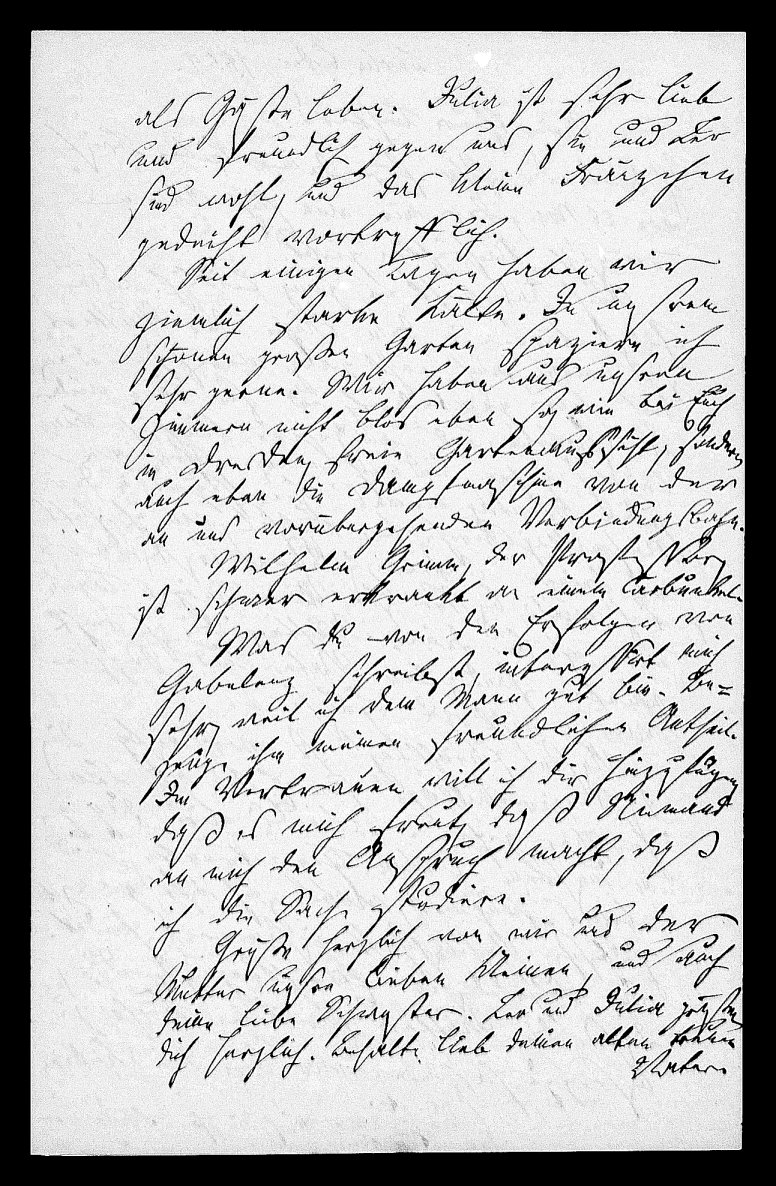 als Gäste leben. Julia ist sehr lieb
und freundlich gegen uns, sie und Leo
sind wohl, und das kleine Fränzchen
gedeiht vortrefflich.
Seit einigen Tagen haben wir
ziemlich starke Kälte. In unsrem
schönen großen Garten spaziere ich
sehr gerne. Wir haben aus unsern
Zimmern nicht blos eben so, wie bei Euch
in Dresden, freie Gartenaussicht, sondern
auch eben die Dampfmaschine von der
an uns vorübergehenden Verbindungsbahn.
Wilhelm Grimm, der Professor,
ist schwer erkrankt an einem Carbunkel.
Was du von den Erfolgen von
Gabelenz schreibst, interessirt mich
sehr, weil ich dem Mann gut bin. Be=
zeuge ihm meinen freundlichen Antheil.
Im Vertrauen will ich dir hinzufügen,
daß es mich freut, daß Niemand
an mich den Anspruch macht, daß
ich die Sache studiere.
Grüße herzlich von mir und der
Mutter unsre lieben Kleinen, und auch
deine liebe Schwester. Leo und Julia grüßen
dich herzlich. Behalte lieb deinen alten treuen
Vater.